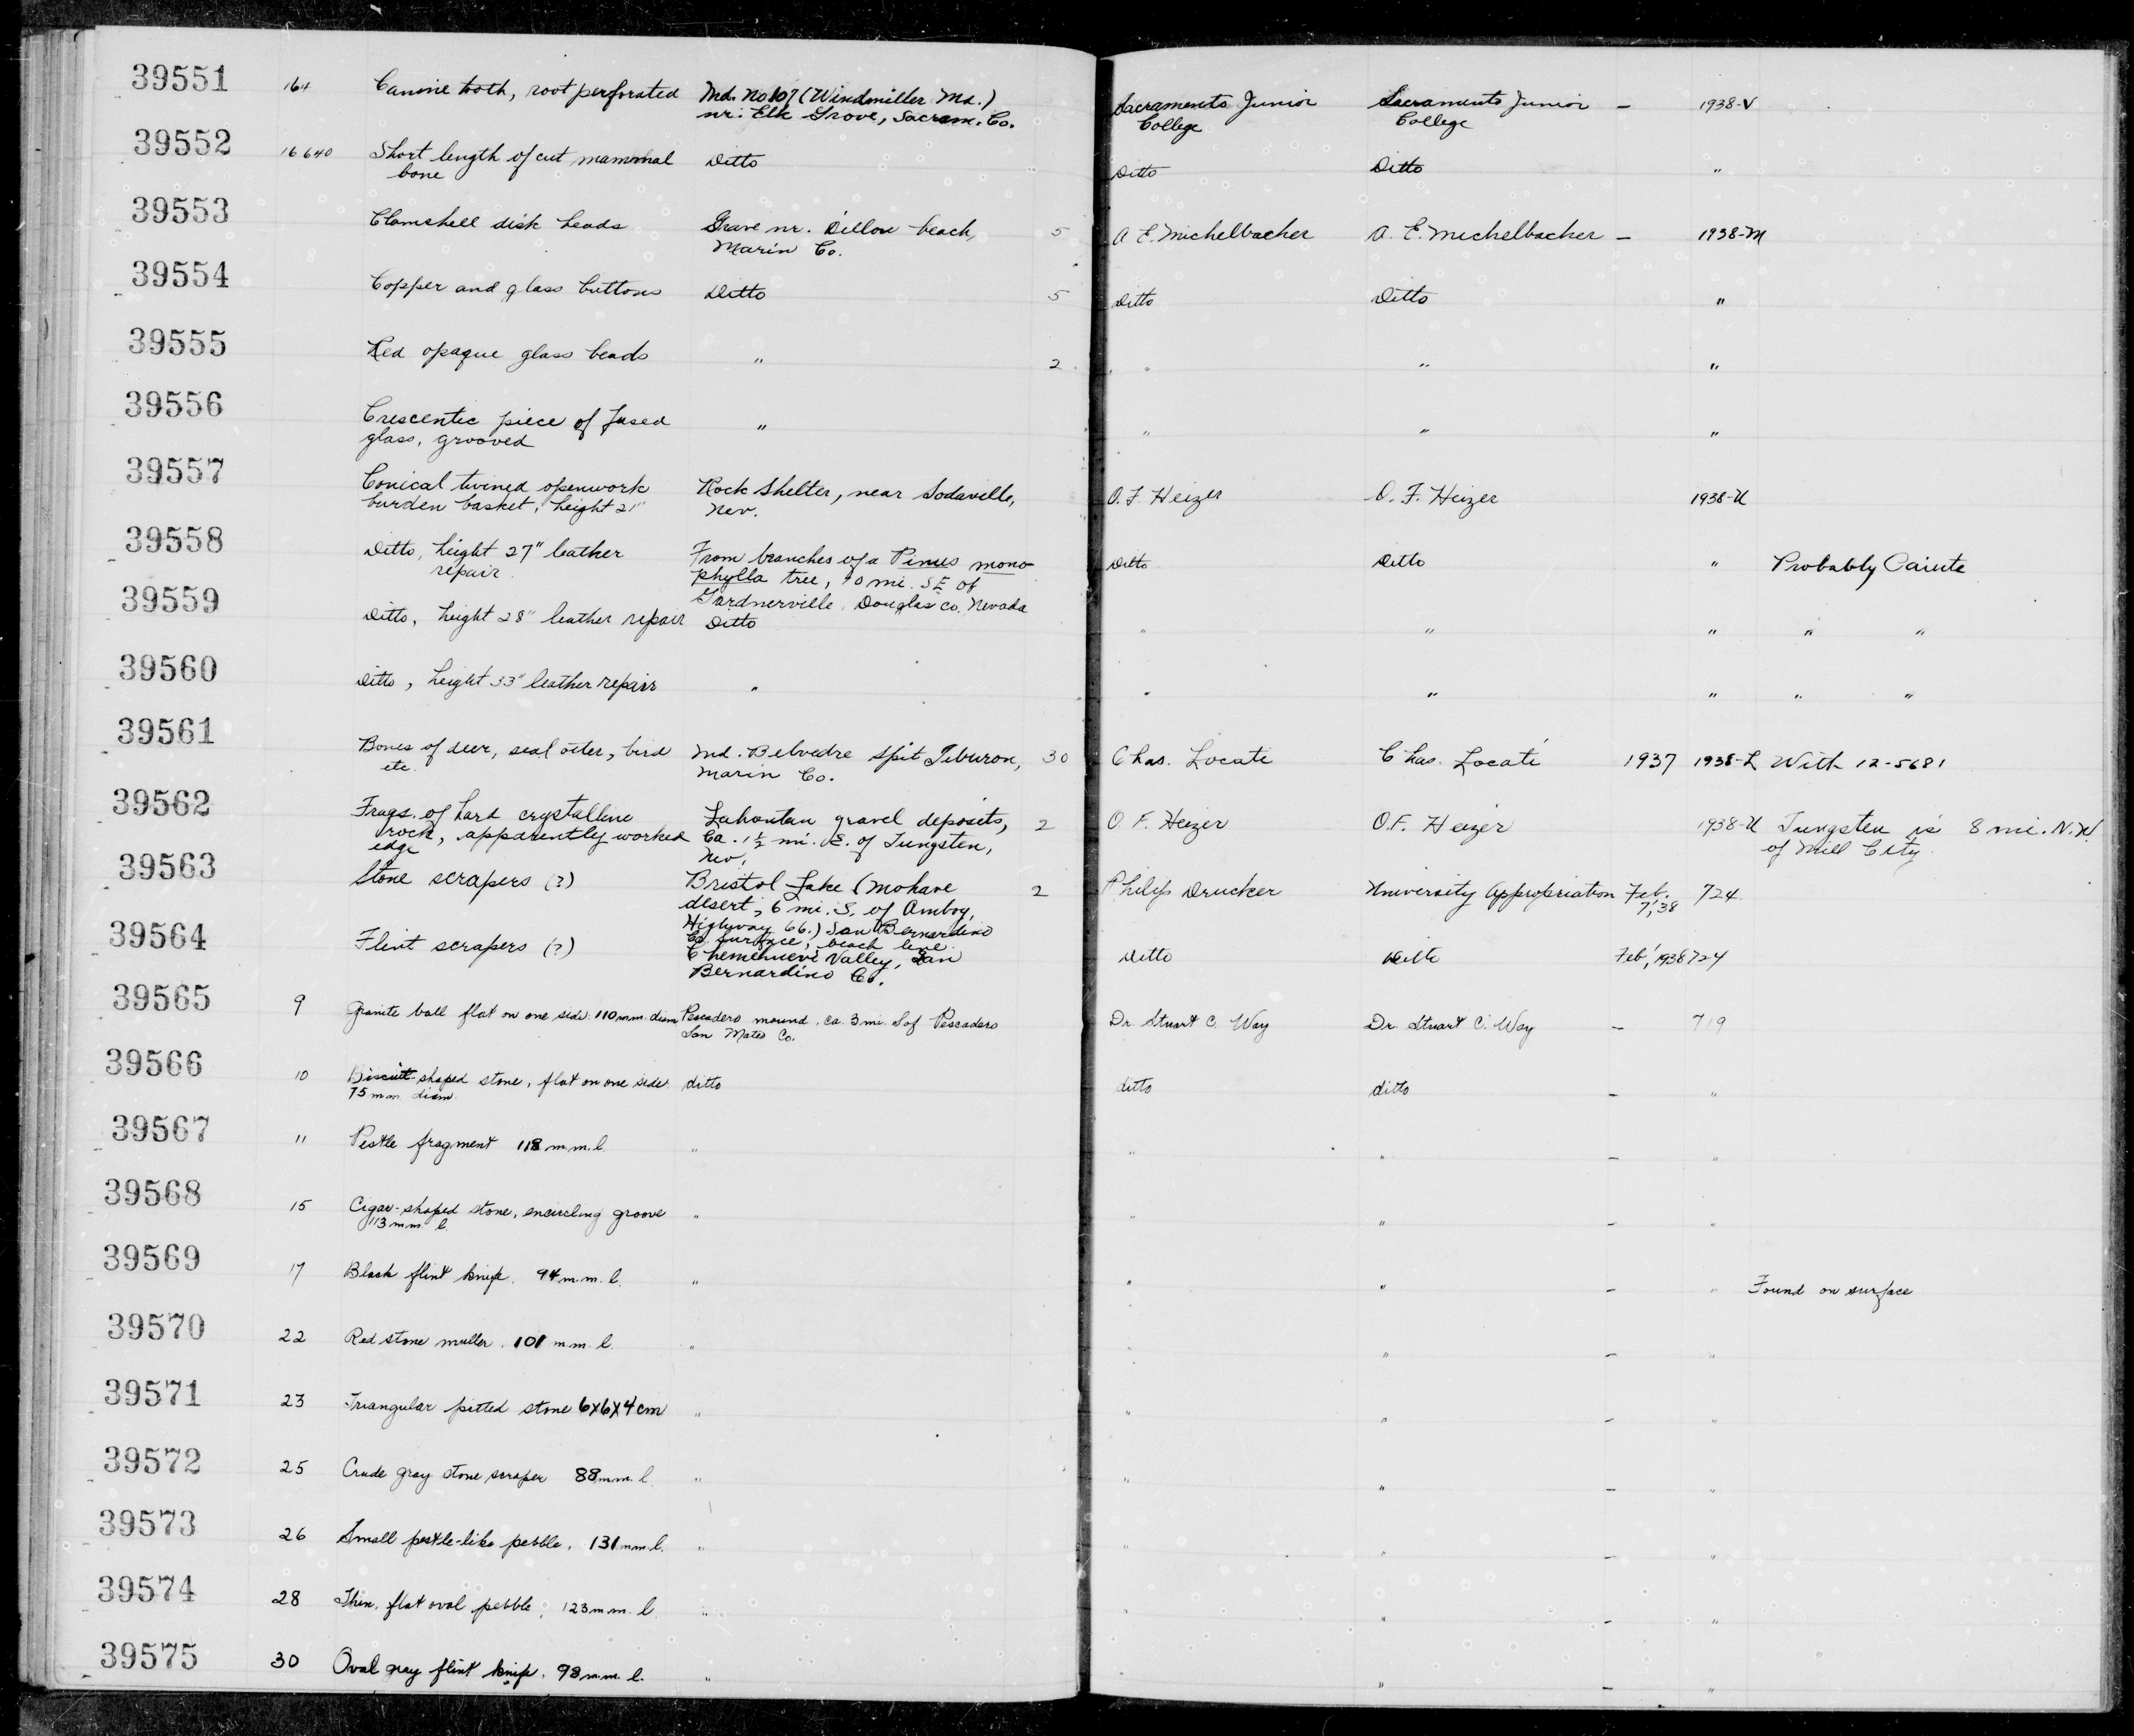 39551 164 Canine tooth, root perforated Md. No 107 (Windmiller Md.) Sacramento Junior Sacramento Junior — 1938-V
nr. Elk Grove, Sacram. Co. College College
39552 16640 Short length of cut mammal Ditto Ditto Ditto "
bone
39553 Clamshell disk beads Grave nr. Dillon beach, 5 A E. Michelbacher A. E. Michelbacher — 1938-M
Marin Co.
39554 Copper and glass buttons Ditto 5 Ditto Ditto "
39555 Red opaque glass beads " 2 " " "
39556 Crescentic piece of fused " " " "
glass, grooved
39557 Conical twined openwork Rock Shelter, near Sodaville, O. F. Heizer O. F. Heizer 1938-U
burden basket, height 21" Nev.
39558 Ditto, height 27" leather From branches of a Pinus mono- Ditto Ditto " Probably Paiute
repair phylla tree, 10 mi. SE of
Gardnerville, Douglas co. Nevada
39559 Ditto, height 28" leather repair Ditto " " " " "
39560 Ditto, height 33" leather repair " " " " " "
39561 Bones of deer, seal otter, bird Md. Belvedre Spit Tiburon, 30 Chas. Locati Chas. Locati 1937 1938-L With 12-5681
etc. Marin Co.
39562 Frags. of hard crystalline Lahontan gravel deposits, 2 O F. Heizer O.F. Heizer 1938-U Tungsten is 8 mi. N.W.
rock, apparently worked Ca. 1½ mi. E. of Tungsten, of Mill City
edge Nev.
39563 Stone scrapers (?) Bristol Lake (Mohave 2 Philip Drucker University Appropriation Feb. 724
desert, 6 mi. S. of Amboy, 7, '38
Highway 66.) San Bernardino
Co. surface, beach line.
39564 Flint scrapers (?) Chemehuevi Valley, San Ditto Ditto Feb', 1938 724
Bernardino Co.
39565 9 Granite ball flat on one side. 110 mm. diam Pescadero mound, ca. 3 mi. S of Pescadero Dr. Stuart C. Way Dr. Stuart C. Way — 719
San Mateo Co.
39566 10 Biscuit-shaped stone, flat on one side ditto ditto ditto — "
75 mm. diam.
39567 11 Pestle fragment 118 m.m. l. " " " — "
39568 15 Cigar-shaped stone, encircling groove " " " — "
113 mm. l.
39569 17 Black flint knife. 94 m.m. l. " " " — " Found on surface
39570 22 Red stone muller. 101 m.m. l. " " " — "
39571 23 Triangular pitted stone 6x6x4 cm " " " — "
39572 25 Crude gray stone scraper 88 mm. l. " " " — "
39573 26 Small pestle-like pebble, 131 mm. l. " " " — "
39574 28 Thin, flat oval pebble, 123 mm. l. " " " — "
39575 30 Oval gray flint knife. 98 m.m. l. " " " — "